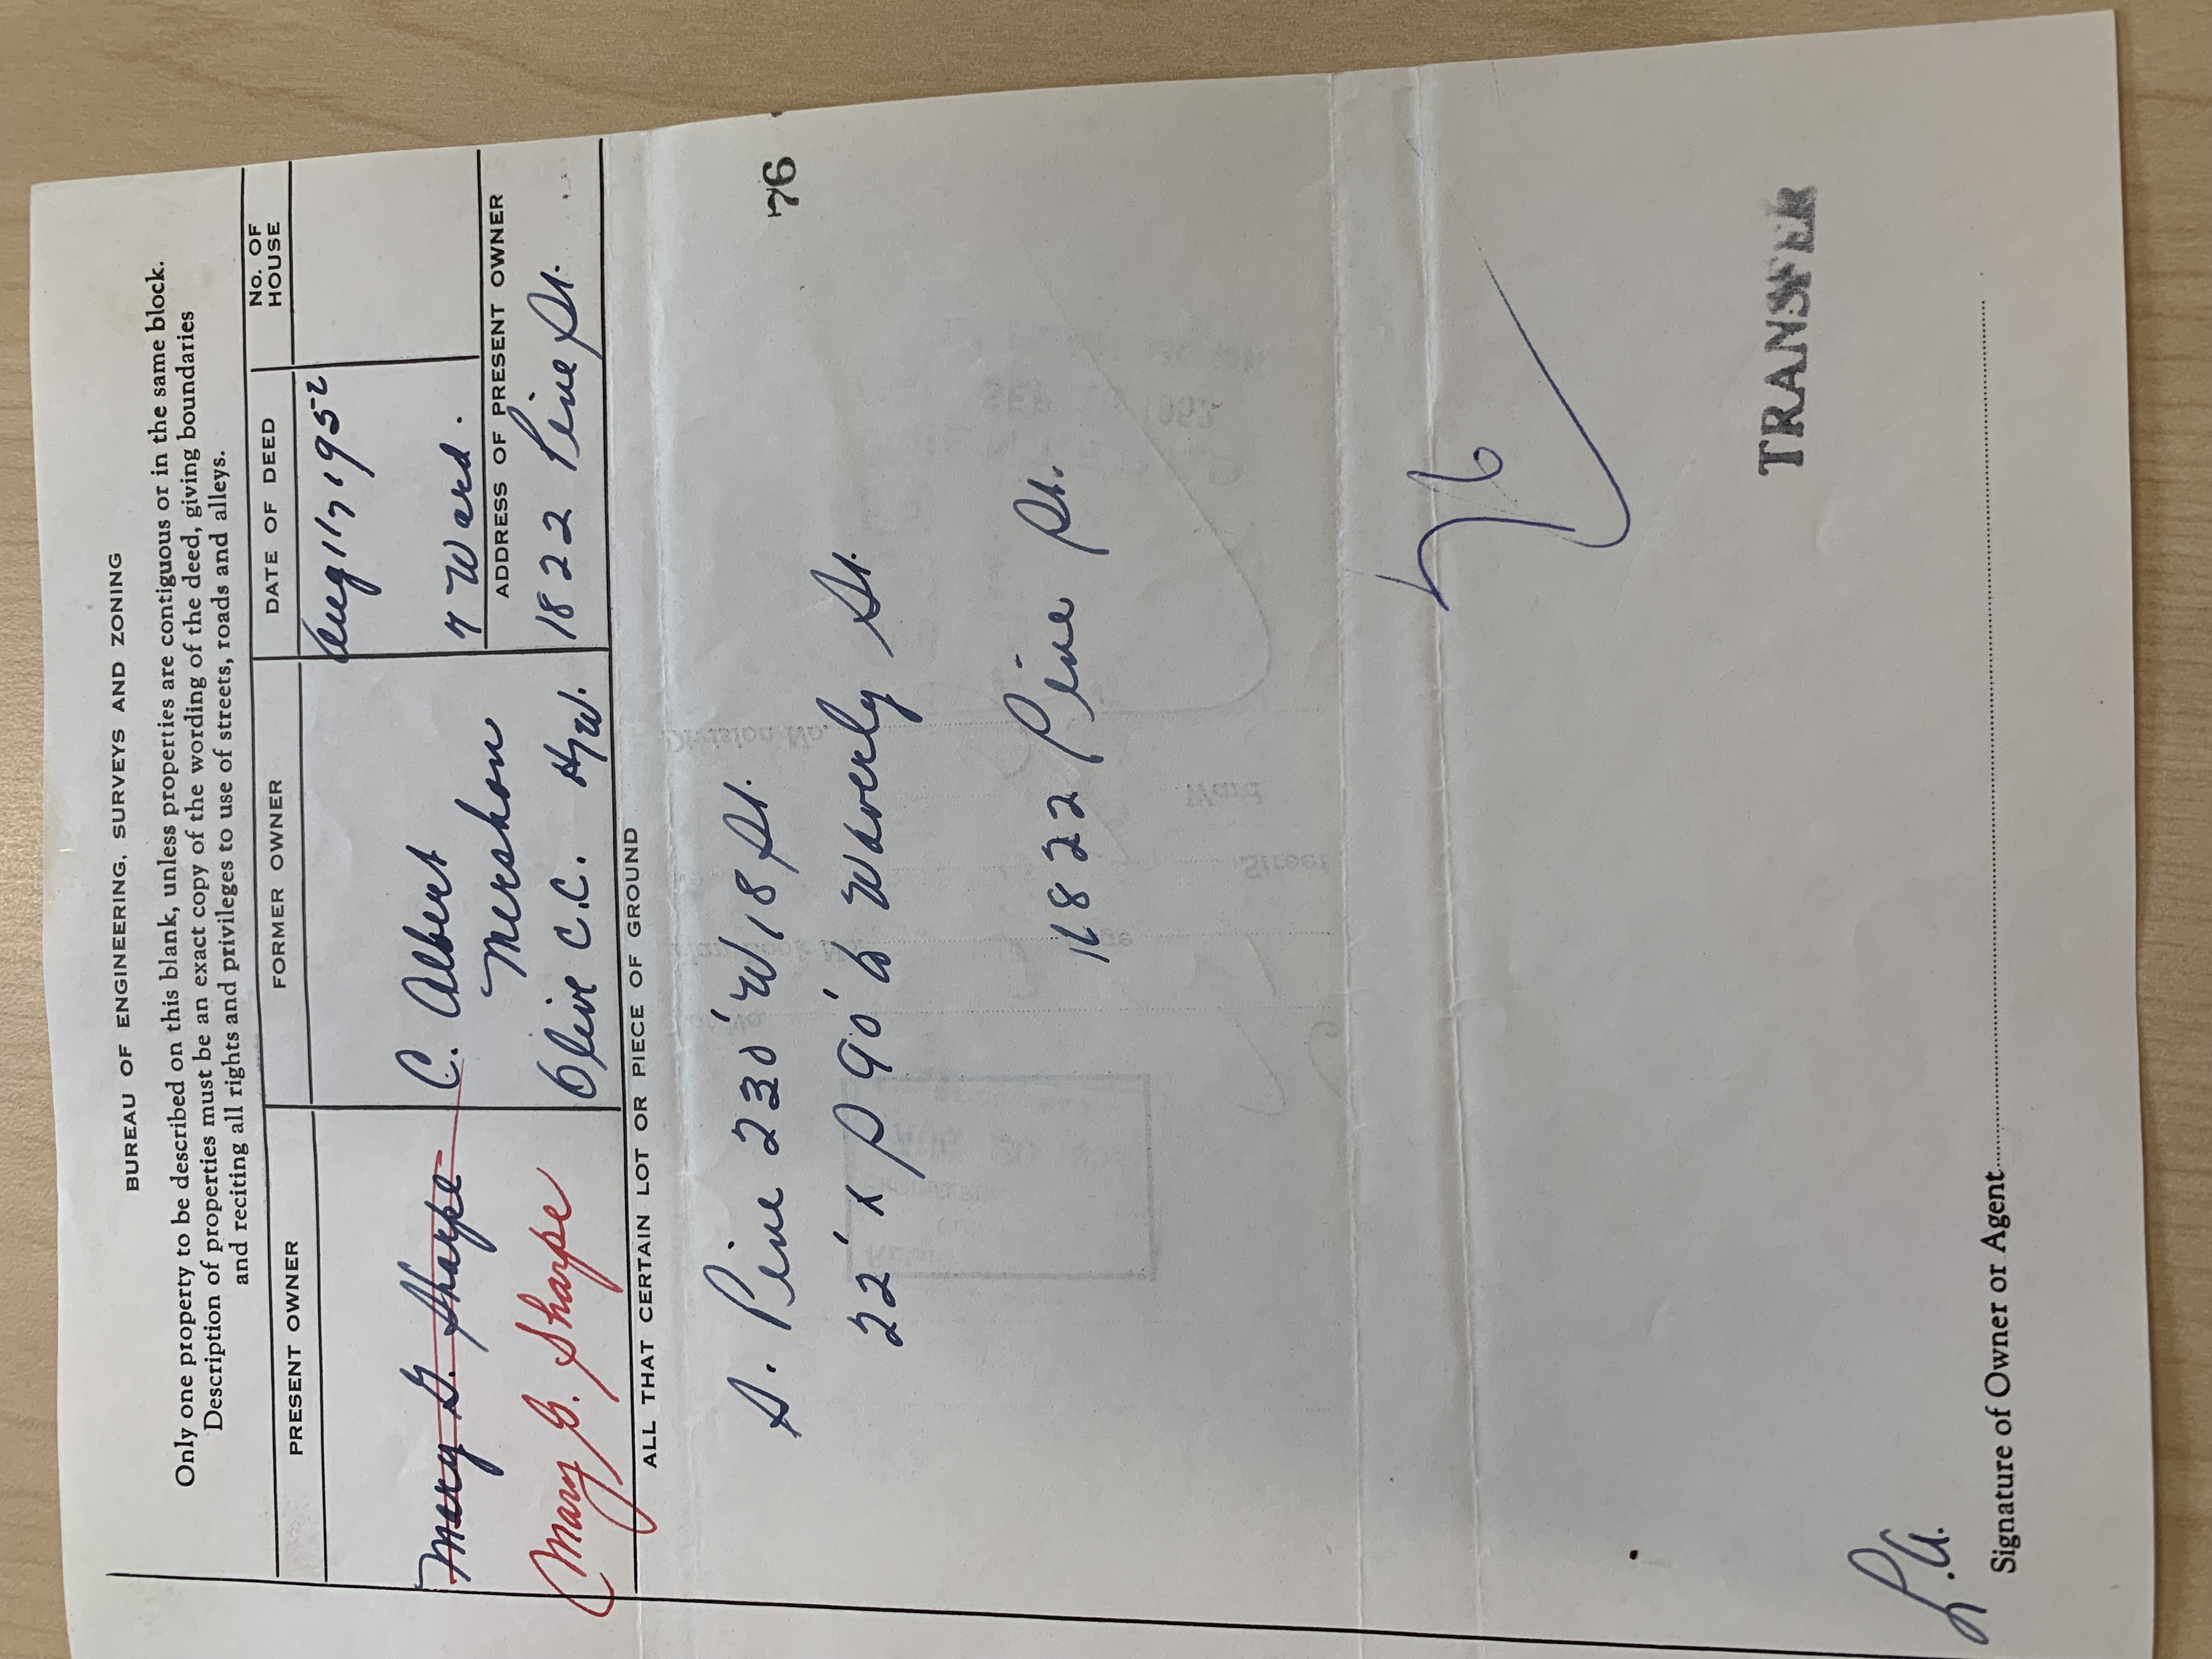 BUREAU OF ENGINEERING, SURVEYS AND ZONING
Only one property to be described on this blank, unless properties are contiguous or in the same block.
Description of properties must be an exact copy of the wording of the deed, giving boundaries
and reciting all rights and privileges to use of streets, roads and alleys.
PRESENT OWNER
FORMER OWNER
DATE OF DEED
No. OF
HOUSE
Aug 11, 1952
Mary G. Sharpe
C. Albert
Mershon
7 Ward.
ADDRESS OF PRESENT OWNER
Mary G. Sharpe
Olive C.C. H/W.
1822 Pine St.
ALL THAT CERTAIN LOT OR PIECE OF GROUND
S. Pine 230' W 18 St.
76
22' x S 90' to Waverly St.
1822 Pine St.
76
TRANSFER
L.A.
Signature of Owner or Agent